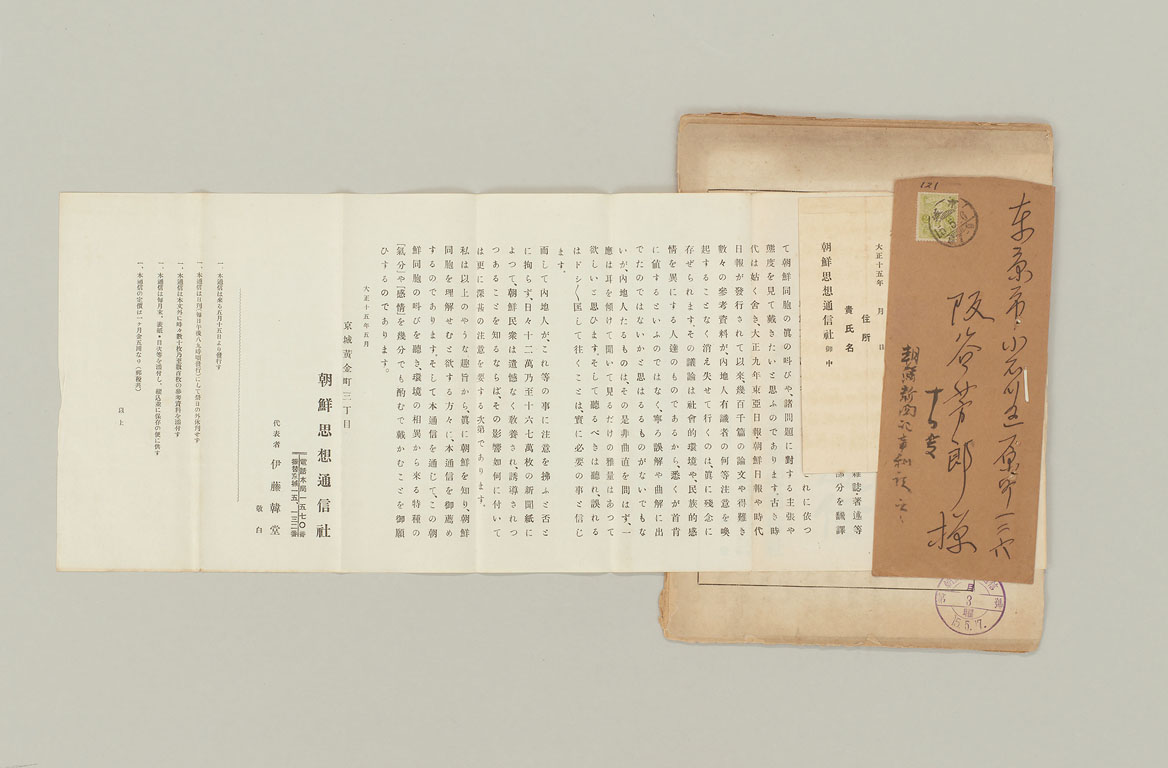 東京市小石川区原町一二六
阪谷芳郎様
121
大正十五年　月　日
住所
貴氏名
朝鮮思想通信社 御中
雜誌・著述等
部分を飜譯
これに依つ
て朝鮮同胞の眞の叫びや、諸問題に對する主張や
態度を見て戴きたいと思ふのであります。古き時
代は姑く舍き、大正九年東亞日報朝鮮日報や時代
日報が發行されて以來、幾百千篇の論文や得難き
數々の參考資料が、內地人有識者の何等注意を喚
起することなく消え失せて行くのは、眞に殘念に
存ぜられます。その議論は社會的環境や、民族的感
情を異にする人達のものであるから、悉くが首肯
に値するといふのではなく、寧ろ誤解や曲解に出
でたのではないかと思はるるものがないでもな
いが、內地人たるものは、その是非曲直を問はず、一
應は耳を傾けて聞いて見るだけの雅量はあつて
欲しいと思ひます。そして聽るべきは聽れ、誤れる
はドシ〳〵匡して往くことは、實に必要の事と信じ
ます。
而して內地人が、これ等の事に注意を拂ふと否と
に拘らず、日々十二萬乃至十六七萬枚の新聞紙に
よつて、朝鮮民衆は遺憾なく敎養され、誘導されつ
つあることを知るならば、その影響如何に付いて
は更に深甚の注意を要する次第であります。
私は以上のやうな趣旨から、眞に朝鮮を知り、朝鮮
同胞を理解せむと欲する方々に、本通信を御薦め
するのであります。そして本通信を通じて、この朝
鮮同胞の叫びを聽き、環境の相異から來る特種の
「氣分」や「感情」を幾分でも酌むで戴かむことを御願
ひするのであります。
大正十五年五月
京城黃金町三丁目
朝鮮思想通信社
電話本局一五七〇番
振替京城一五、一三二番
代表者 伊藤韓堂
敬白
一、本通信は來る五月十五日より發行す
一、本通信は日刊(每日午後八九時頃發行)にして祭日の外休刊せず
一、本通信は本文外に時々數十枚乃至數百枚の參考資料を添付す
一、本通信は每月末、表紙・目次等を添付し、綴込並に保存の便に供す
一、本通信の定價は一ヶ月金五圓なり(郵稅共)
以上